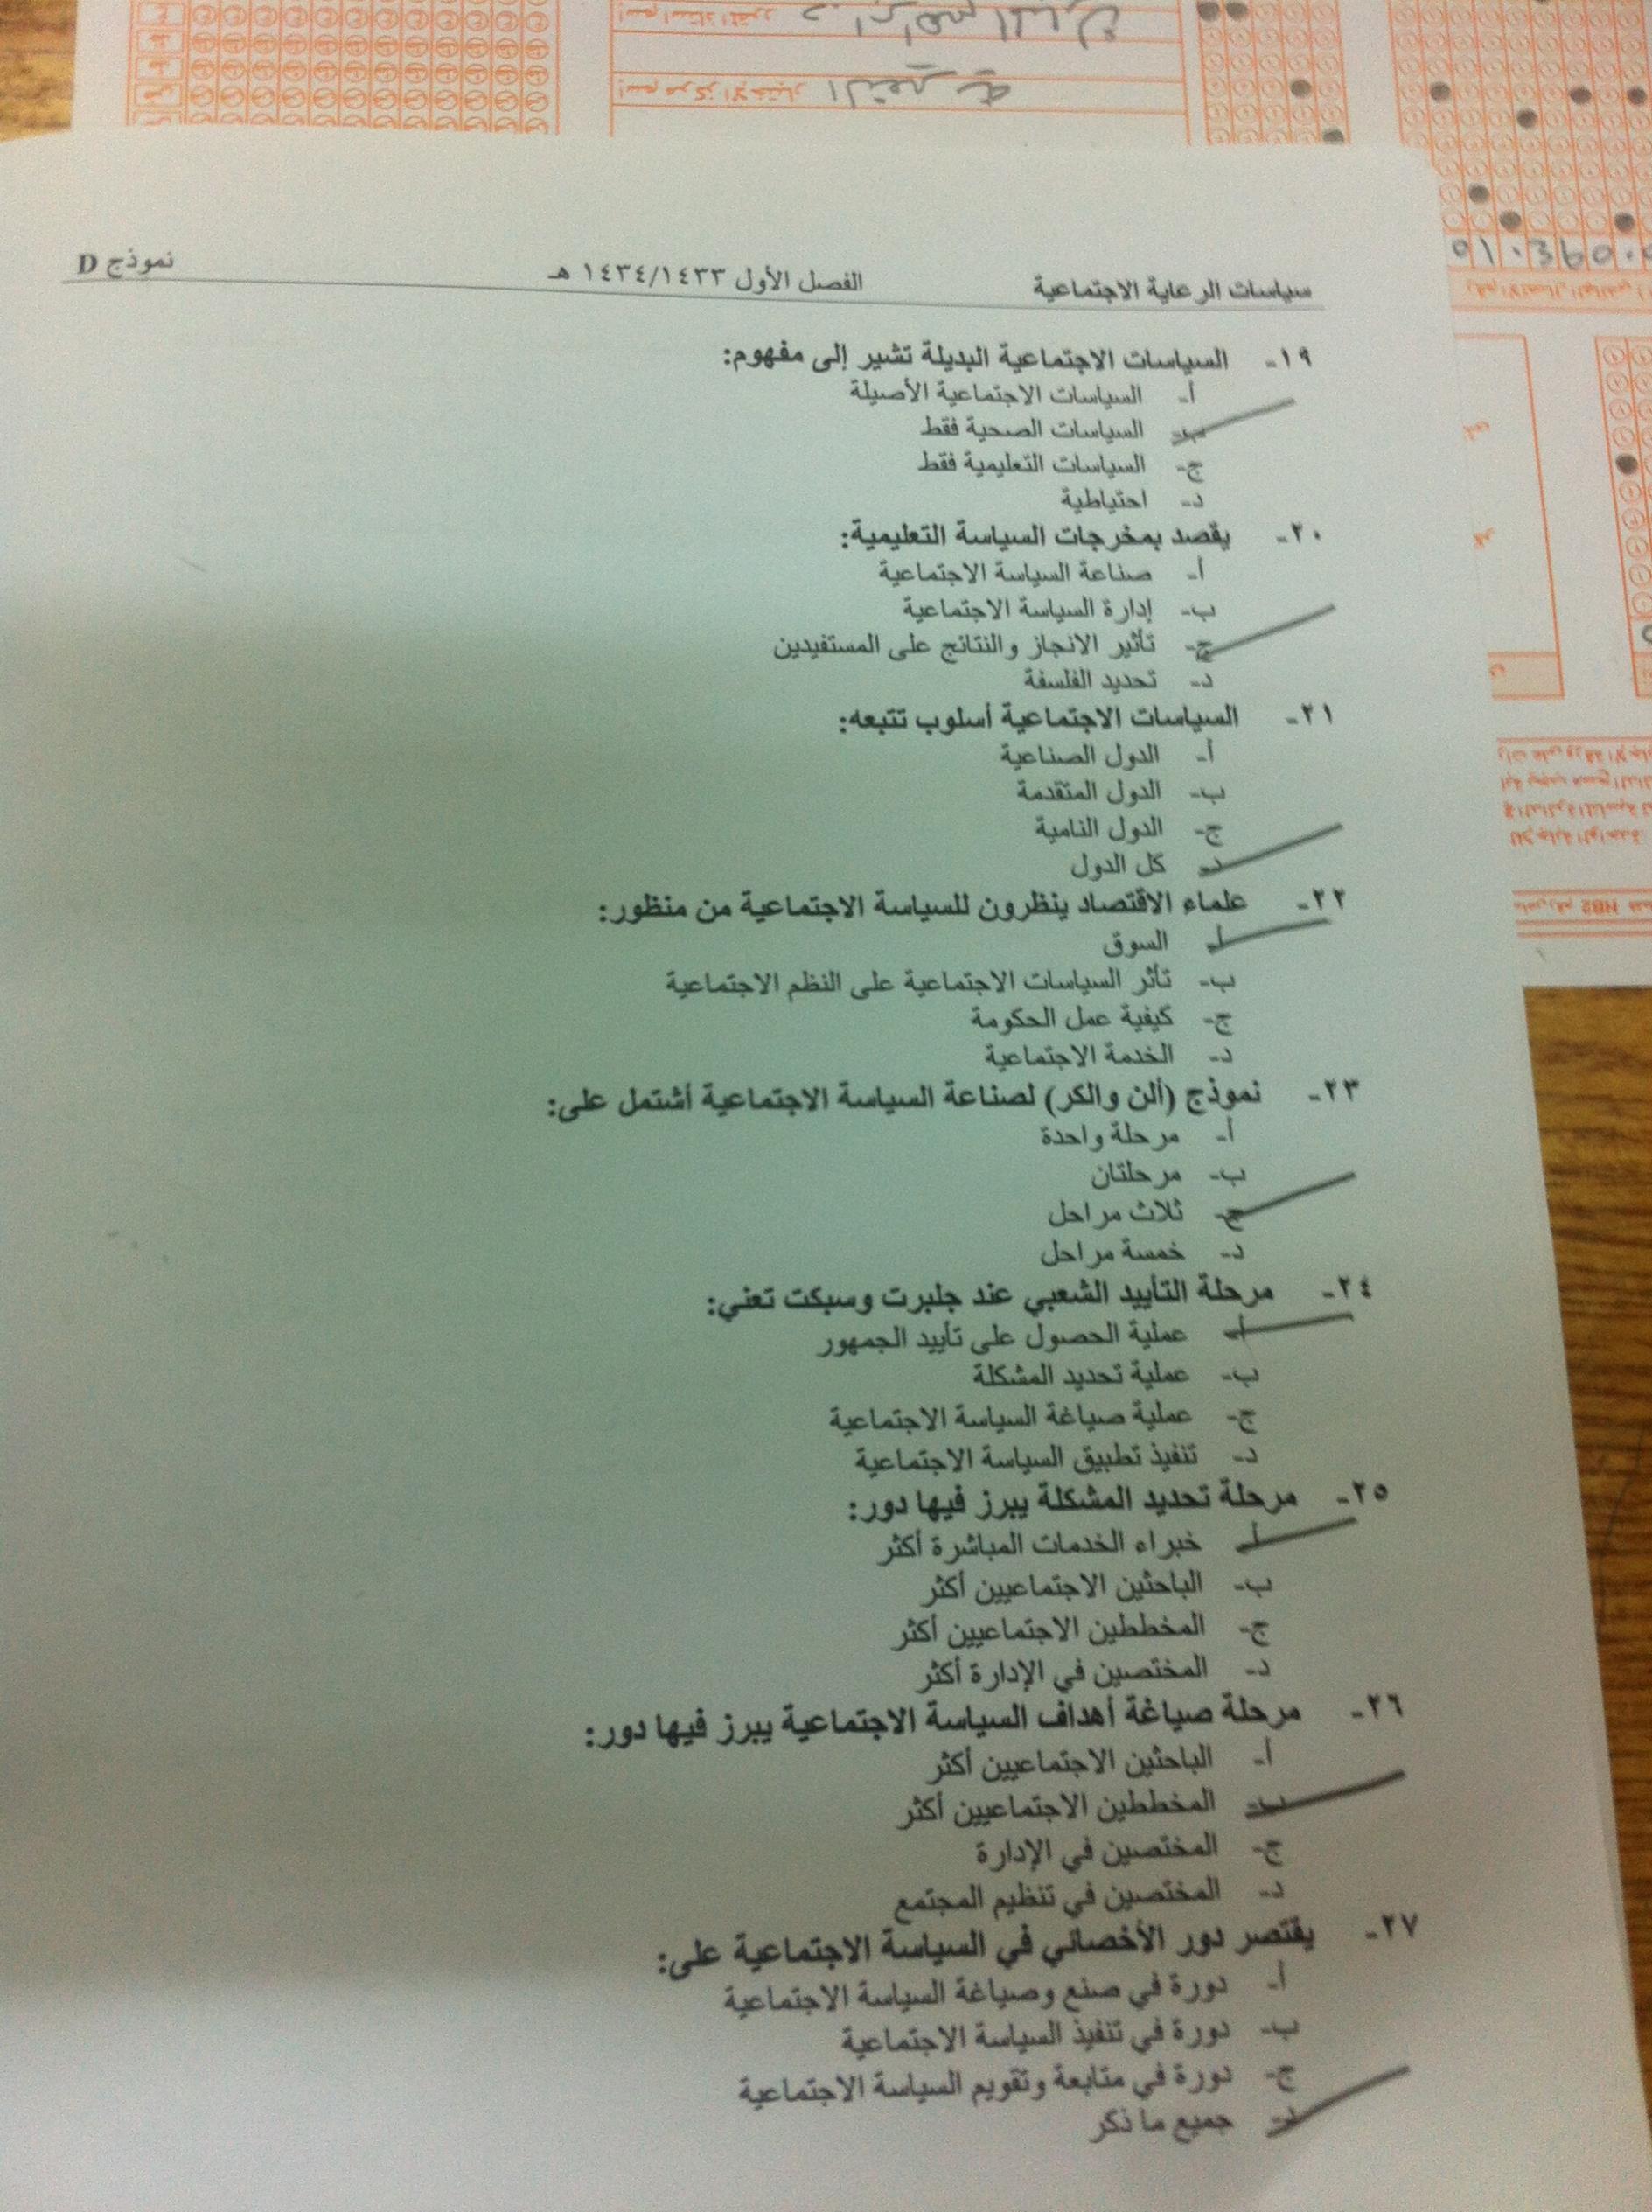 سياسات الرعاية الاجتماعية الفصل الأول ١٤٣٤/١٤٣٣ هـ نموذج D
١٩- السياسات الاجتماعية البديلة تشير إلى مفهوم:
أ- السياسات الاجتماعية الأصيلة
ب- السياسات الصحية فقط
ج- السياسات التعليمية فقط
د- احتياطية
٢٠- يقصد بمخرجات السياسة التعليمية:
أ- صناعة السياسة الاجتماعية
ب- إدارة السياسة الاجتماعية
ج- تأثير الانجاز والنتائج على المستفيدين
د- تحديد الفلسفة
٢١- السياسات الاجتماعية أسلوب تتبعه:
أ- الدول الصناعية
ب- الدول المتقدمة
ج- الدول النامية
د- كل الدول
٢٢- علماء الاقتصاد ينظرون للسياسة الاجتماعية من منظور:
أ- السوق
ب- تأثر السياسات الاجتماعية على النظم الاجتماعية
ج- كيفية عمل الحكومة
د- الخدمة الاجتماعية
٢٣- نموذج (ألن والكر) لصناعة السياسة الاجتماعية أشتمل على:
أ- مرحلة واحدة
ب- مرحلتان
ج- ثلاث مراحل
د- خمسة مراحل
٢٤- مرحلة التأييد الشعبي عند جلبرت وسبكت تعني:
أ- عملية الحصول على تأييد الجمهور
ب- عملية تحديد المشكلة
ج- عملية صياغة السياسة الاجتماعية
د- تنفيذ تطبيق السياسة الاجتماعية
٢٥- مرحلة تحديد المشكلة يبرز فيها دور:
أ- خبراء الخدمات المباشرة أكثر
ب- الباحثين الاجتماعيين أكثر
ج- المخططين الاجتماعيين أكثر
د- المختصين في الإدارة أكثر
٢٦- مرحلة صياغة أهداف السياسة الاجتماعية يبرز فيها دور:
أ- الباحثين الاجتماعيين أكثر
ب- المخططين الاجتماعيين أكثر
ج- المختصين في الإدارة
د- المختصين في تنظيم المجتمع
٢٧- يقتصر دور الأخصائي في السياسة الاجتماعية على:
أ- دورة في صنع وصياغة السياسة الاجتماعية
ب- دورة في تنفيذ السياسة الاجتماعية
ج- دورة في متابعة وتقويم السياسة الاجتماعية
د- جميع ما ذكر